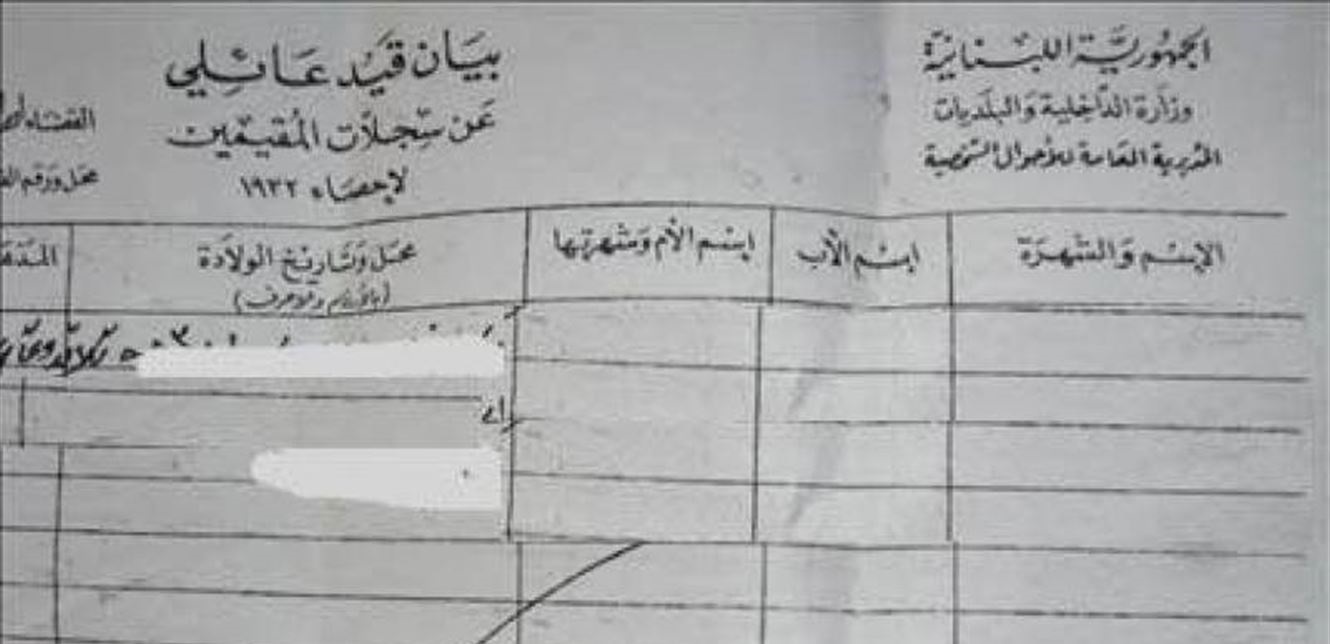 الجمهوريّة اللبنانيّة
وزارة الداخلية والبلديات
المديرية العامة للأحوال الشخصية
بيَان قيَد عَائلي
عَن سِجلات المُقيمين
لإحصاء ١٩٣٢
القضاء
محل ورقم
الإسم والشهرة
إسم الأب
إسم الأم وشهرتها
محل وتاريخ الولادة
(بالأرقام والأحرف)
المذهب